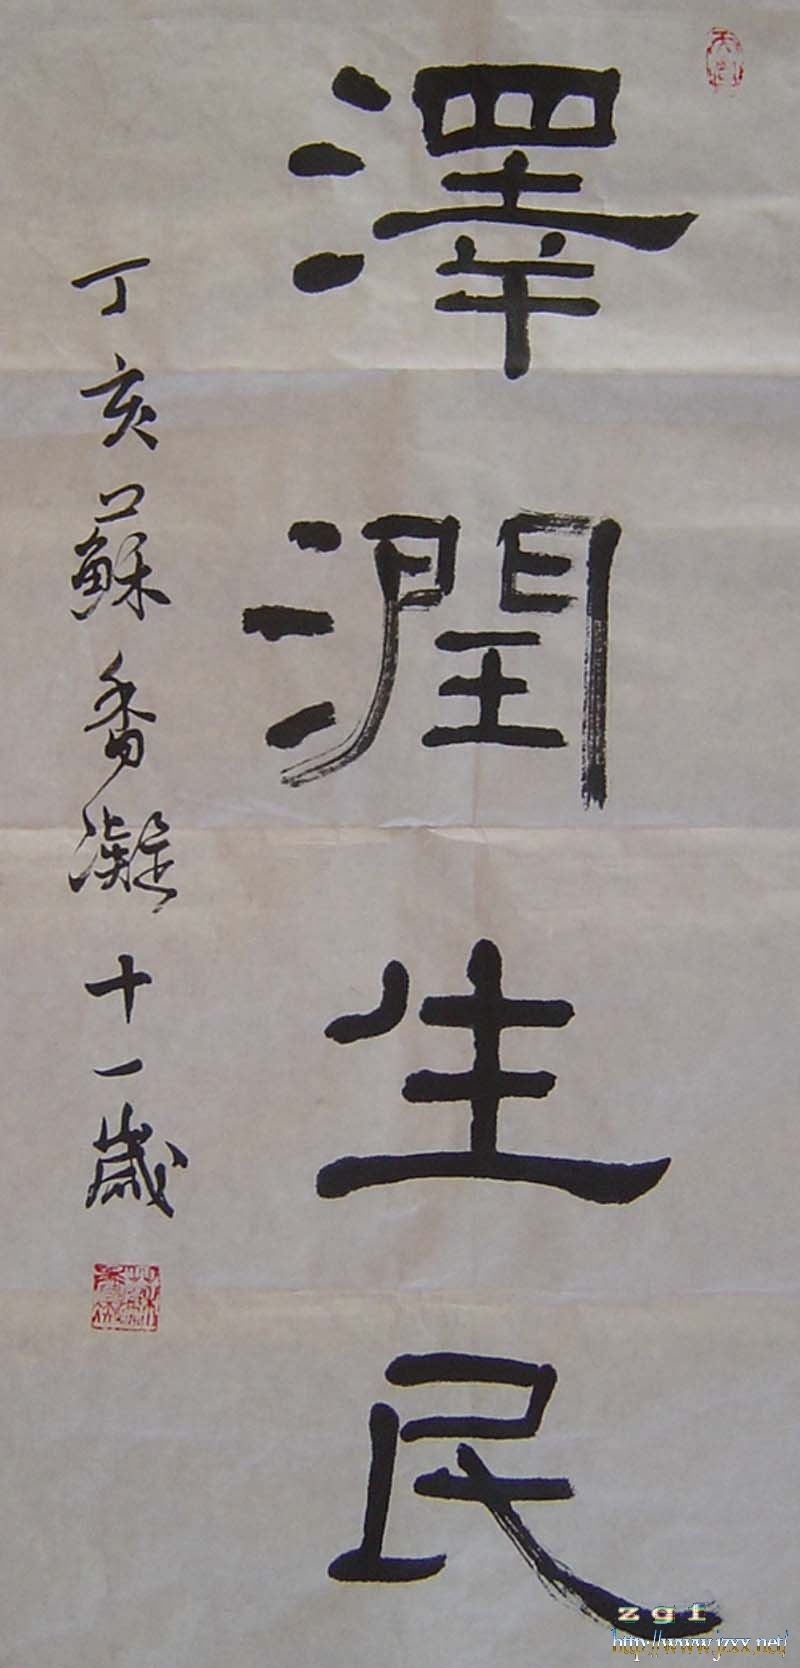 澤潤生民
丁亥蘇香凝十一歲
zgf
http://www.jzxx.net/